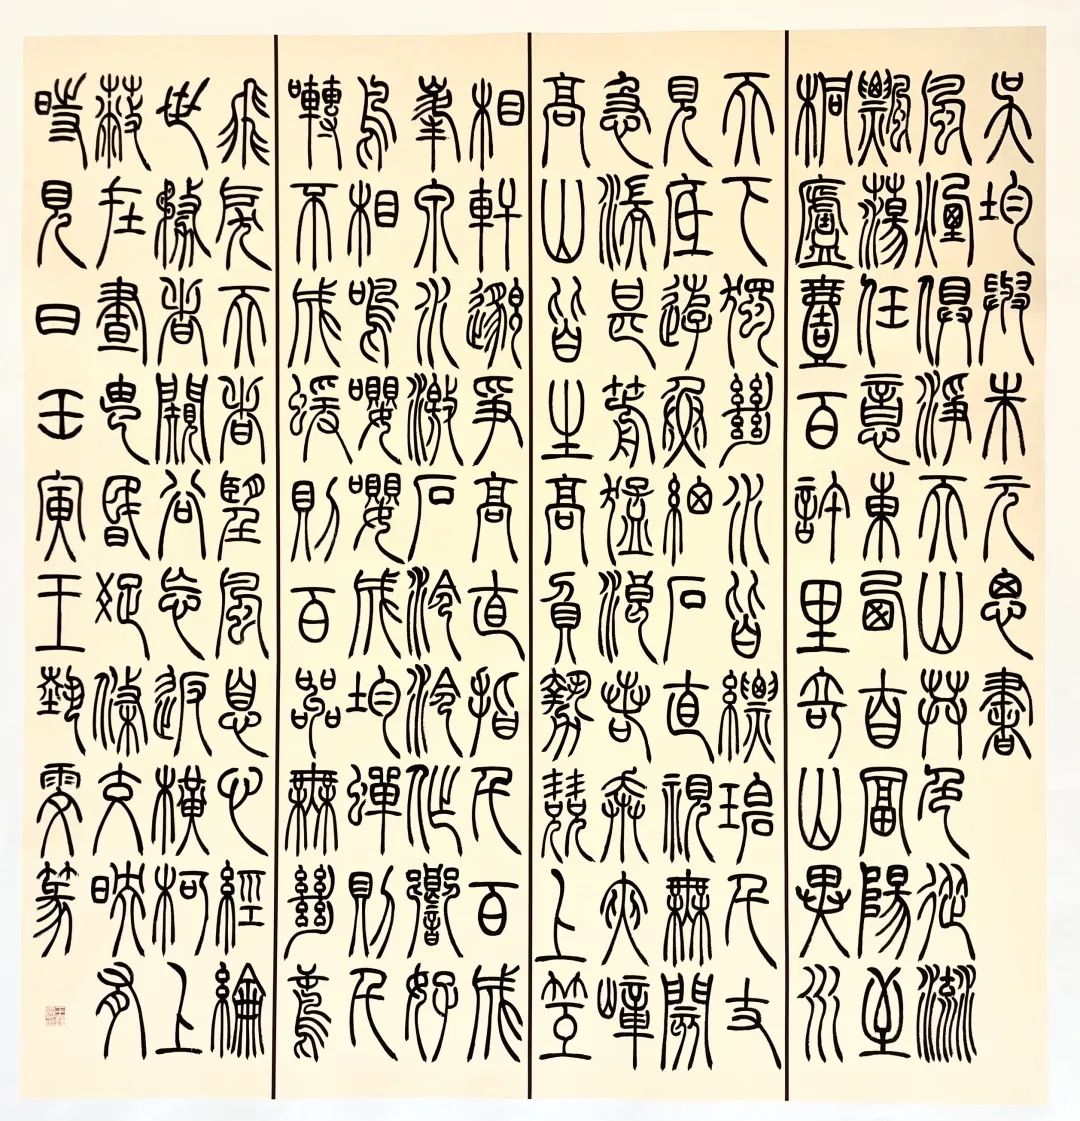 吳均與朱元思書
風煙俱淨天山共色從流
飄蕩任意東西自富陽至
桐廬壹百許里奇山異水
天下獨絕水皆縹碧千丈
見底游魚細石直視無閡
急湍甚箭猛浪若奔夾嶂
高山皆生高負勢競上互
相軒邈爭高直指千百成
峯泉水激石泠泠作響好
鳥相鳴嚶嚶成均蟬則千
囀不成蝯則百叫無絕鳶
飛戾天者望風息心經綸
世務者闚谷忘返橫柯上
蔽在晝昏疏條交映有
時見日壬寅王埶雯篆